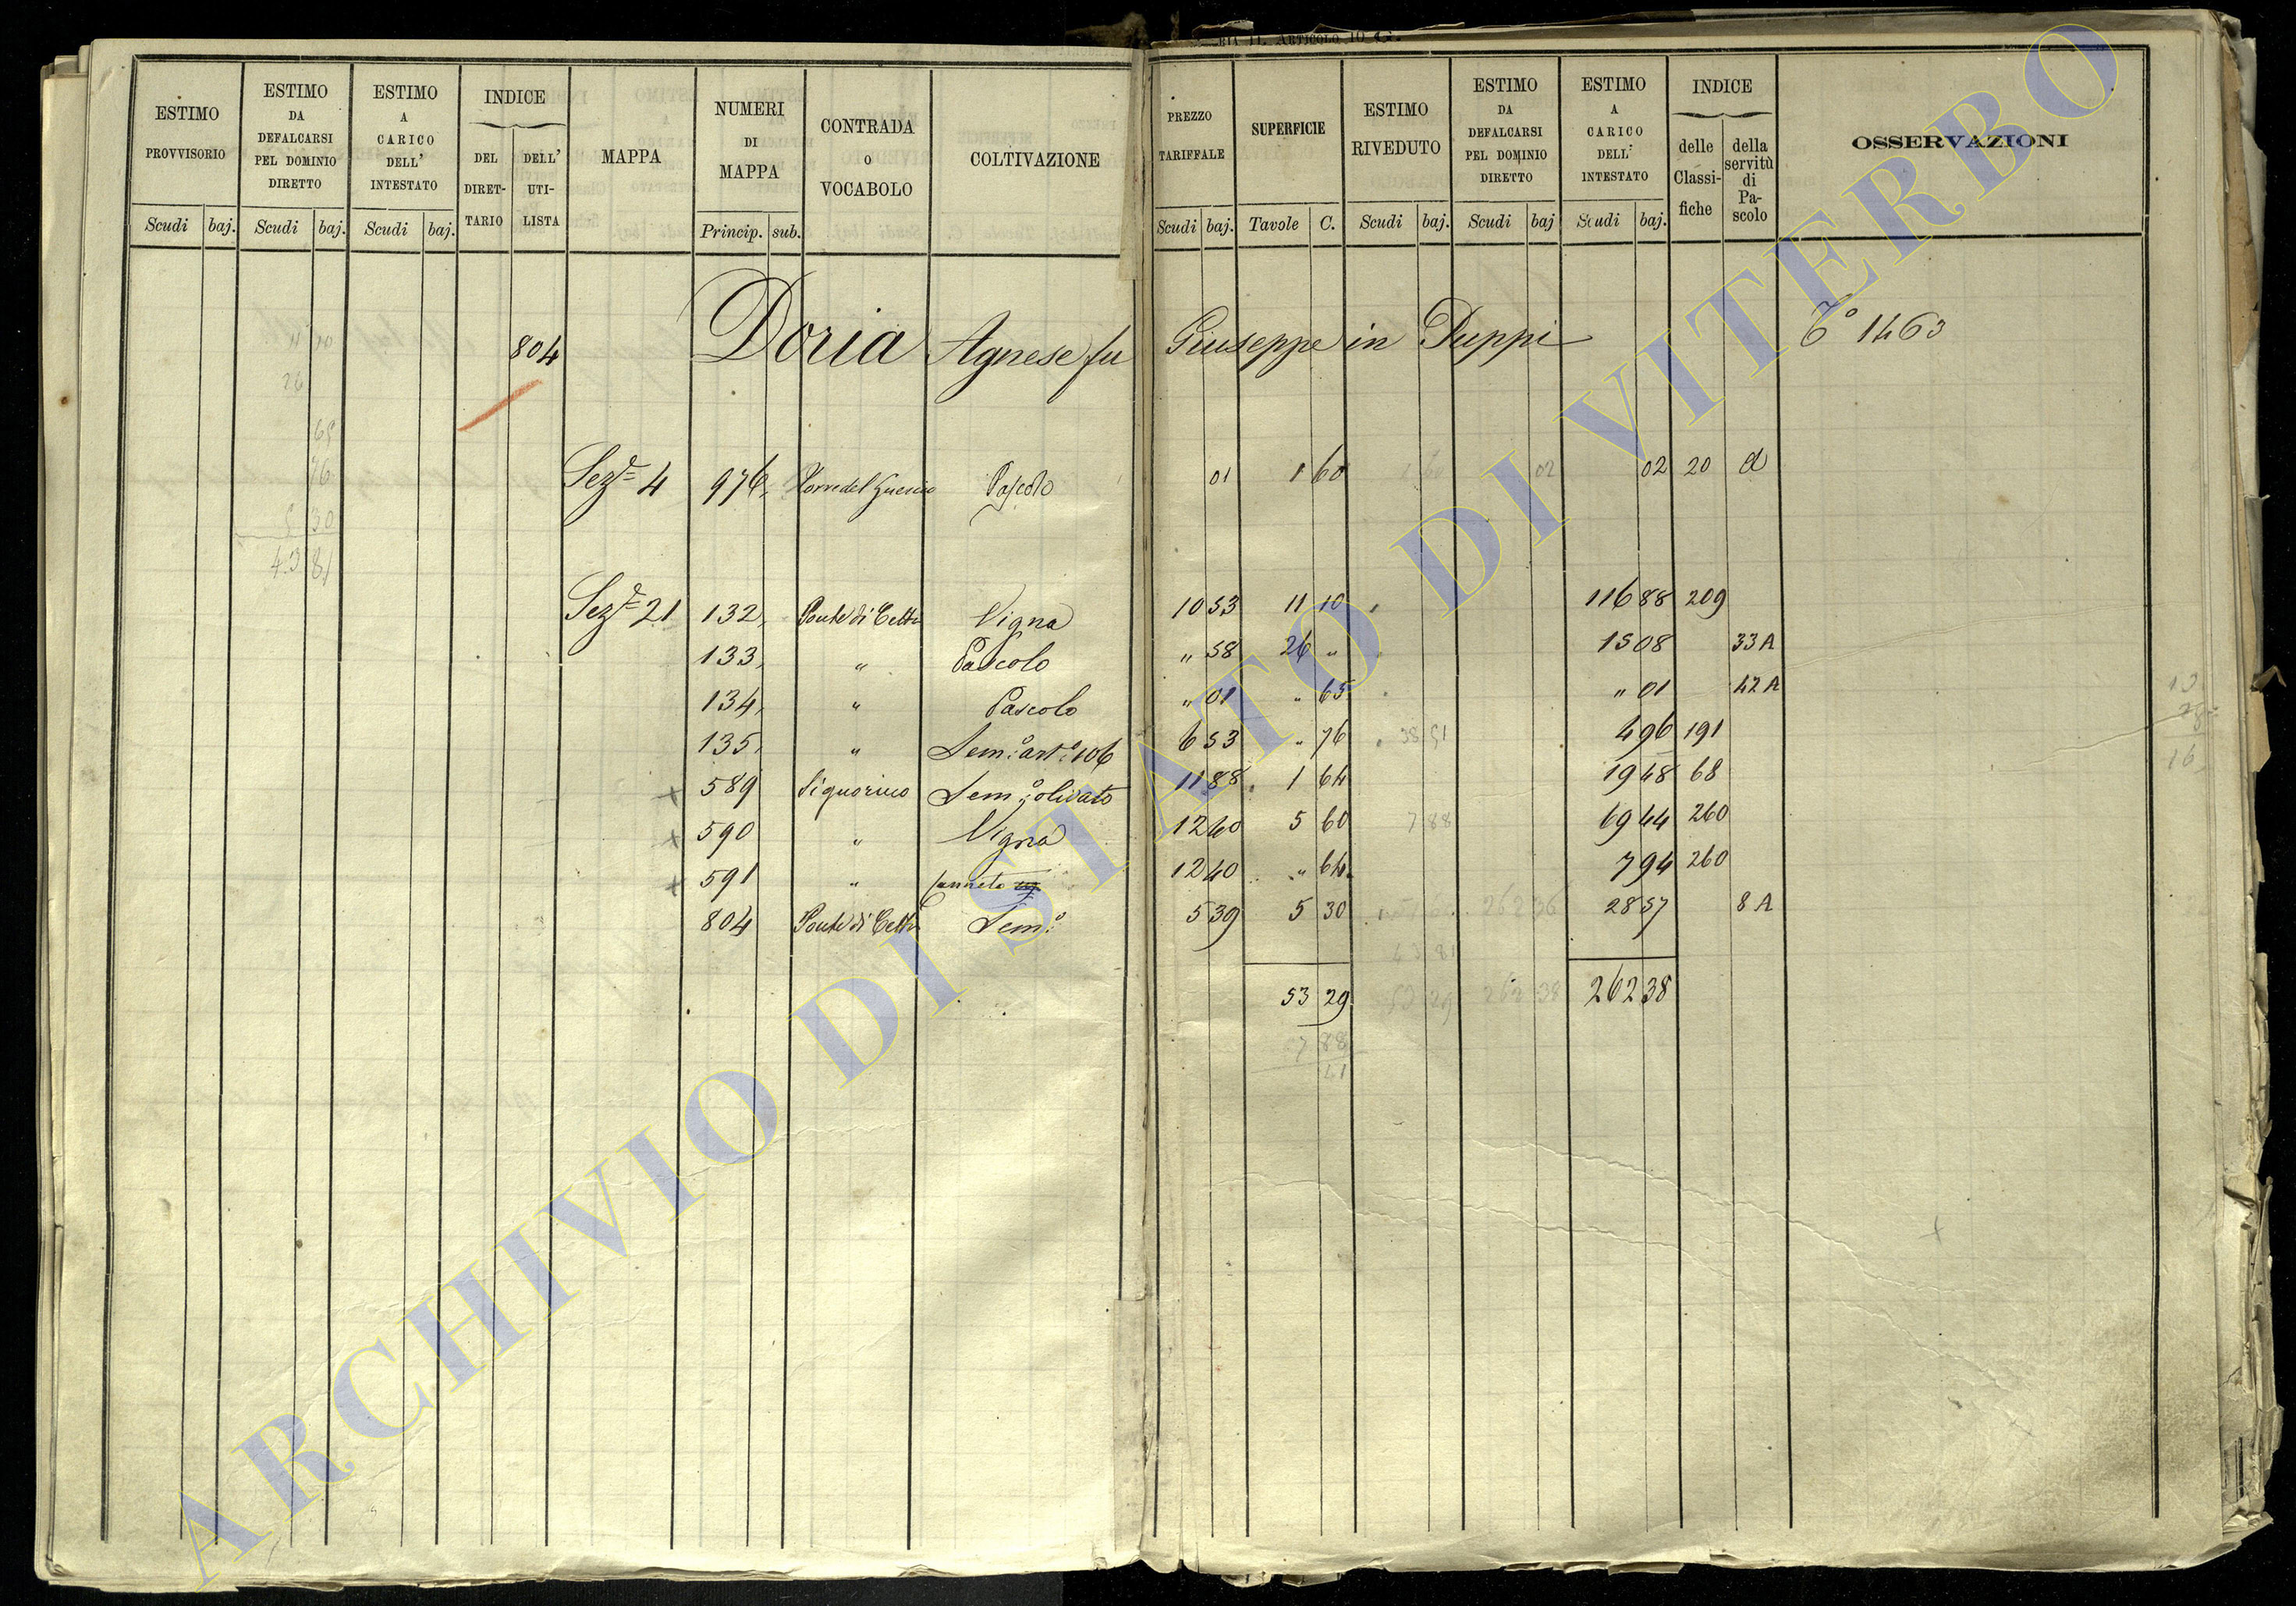 ESTIMO PROVVISORIO | ESTIMO DA DEFALCARSI PEL DOMINIO DIRETTO | ESTIMO A CARICO DELL' INTESTATO | INDICE DEL DIRET-TARIO | DELL' UTI-LISTA | MAPPA | NUMERI DI MAPPA | CONTRADA O VOCABOLO | COLTIVAZIONE | PREZZO TARIFFALE | SUPERFICIE | ESTIMO RIVEDUTO | ESTIMO DA DEFALCARSI PEL DOMINIO DIRETTO | ESTIMO A CARICO DELL' INTESTATO | INDICE delle Classi-fiche | della servitù di Pa-scolo | OSSERVAZIONI
Scudi baj. | Scudi baj. | Scudi baj. | Princip. sub. | Scudi baj. | Tavole C. | Scudi baj. | Scudi baj | Scudi baj.
804 Doria Agnese fu Giuseppe in Puppi 1463
Sez.e 4 976 Pascolo 01 1 60 02 20 d
Sez.e 21 132 Vigna 10 53 11 10 116 88 209
133 " Pascolo " 58 26 " 15 08 33 A
134 " Pascolo " 01 " 65 " 01 42 A
135 " Sem.o art.o 106 6 53 " 76 4 96 191
+ 589 Signorino Sem.o olivato 11 88 1 64 19 48 68
+ 590 " Vigna 12 40 5 60 69 44 260
+ 591 " Canneto 12 40 " 64 7 94 260
804 Sem.o 5 39 5 30 28 57 8 A
53 29 262 38
ARCHIVIO DI STATO DI VITERBO